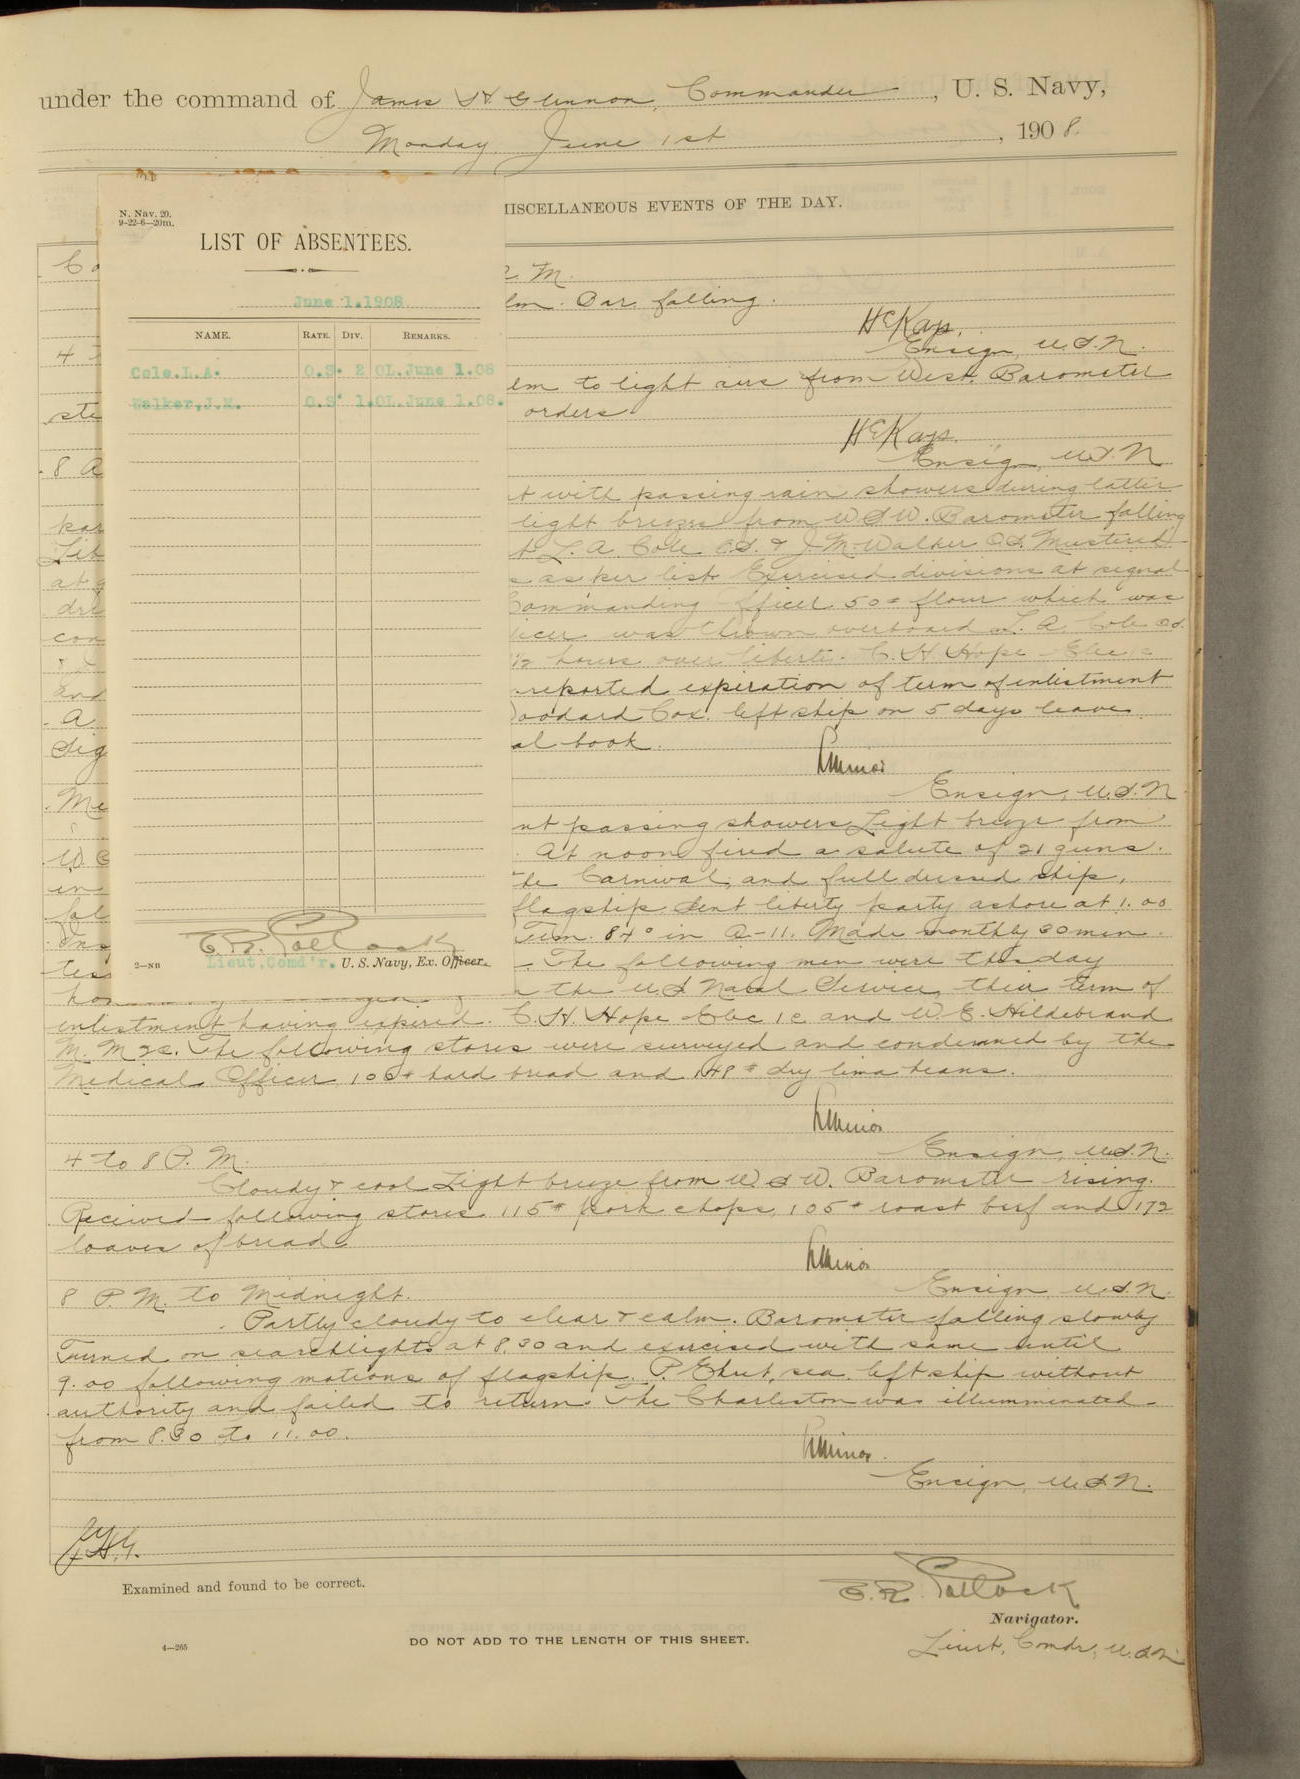 under the command of James H Glennon, Commander, U. S. Navy,
Monday June 1st, 1908.
MISCELLANEOUS EVENTS OF THE DAY.
N. Nav. 20.
9-22-6—20m.
LIST OF ABSENTEES.
June 1.1908
NAME. RATE. DIV. REMARKS.
Cole.L.A. O.S. 2 OL.June 1.08
Walker,J.M. O.S. 1.OL.June 1.08.
E.R. Pollock
2—NB Lieut,Comd'r. U. S. Navy, Ex. Officer.
M.
Bar falling.
McKay.
Ensign, U.S.N.
4
lm to light airs from West. Barometer
ste orders.
McKay.
Ensign, U.S.N
8 A
t with passing rain showers during latter
par light breezes from WSW. Barometer falling
Lib t L. A. Cole O.S. & J M Walker O.S. Mustered
at s as per list. Exercised divisions at signal
dri Commanding Officer 50# flour which was
con icer was thrown overboard. L. A. Cole O.S.
1/2 hours over liberty. C. H Hope Elec 1c
and reported expiration of term of enlistment
A oodard Cox. left ship on 5 days leave.
Sig al book.
Minor
Ensign, U.S.N
Me nt passing showers. Light breeze from
W At noon fired a salute of 21 guns.
in the Carnival, and full dressed ship,
fol flagship. Sent liberty party ashore at 1.00
Ins Tem. 84° in A-11. Made monthly 30 min.
tes The following men were this day
hon the U.S Naval Service, their term of
enlistment having expired. C. H. Hope Elec 1c and W. E. Hildebrand
M. M 2c. The following stores were surveyed and condemned by the
Medical Officer 106# hard bread and 148# dry lima beans.
Minor
Ensign, U.S.N.
4 to 8 P. M.
Cloudy & cool Light breeze from W S W. Barometer rising.
Received following stores 115# pork chops, 105# roast beef and 172
loaves of bread.
Minor
Ensign U.S.N.
8 P. M. to Midnight.
Partly cloudy to clear & calm. Barometer falling slowly
Turned on searchlights at 8.30 and exercised with same until
9.00 following motions of flagship. P. Ehut, sea. left ship without
authority and failed to return. The Charleston was illumminated
from 8.30 to 11.00.
Minor.
Ensign, U.S.N.
J.H.G.
Examined and found to be correct.
E. R. Pollock
Navigator.
Lieut, Comdr, U.S.N
4—265
DO NOT ADD TO THE LENGTH OF THIS SHEET.